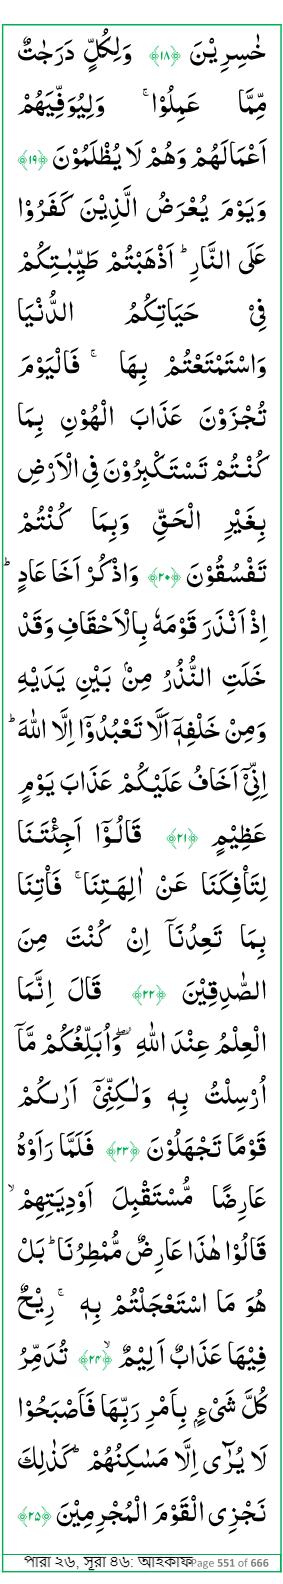 خٰسِرِيْنَ ﴿۱۸﴾ وَلِكُلٍّ دَرَجٰتٌ
مِّمَّا عَمِلُوْا ۚ وَلِيُوَفِّيَهُمْ
اَعْمَالَهُمْ وَهُمْ لَا يُظْلَمُوْنَ ﴿۱۹﴾
وَيَوْمَ يُعْرَضُ الَّذِيْنَ كَفَرُوْا
عَلَى النَّارِ ؕ اَذْهَبْتُمْ طَيِّبٰتِكُمْ
فِيْ حَيَاتِكُمُ الدُّنْيَا
وَاسْتَمْتَعْتُمْ بِهَا ۚ فَالْيَوْمَ
تُجْزَوْنَ عَذَابَ الْهُوْنِ بِمَا
كُنْتُمْ تَسْتَكْبِرُوْنَ فِى الْاَرْضِ
بِغَيْرِ الْحَقِّ وَبِمَا كُنْتُمْ
تَفْسُقُوْنَ ﴿۲۰﴾ وَاذْكُرْ اَخَا عَادٍ ؕ
اِذْ اَنْذَرَ قَوْمَهٗ بِالْاَحْقَافِ وَقَدْ
خَلَتِ النُّذُرُ مِنْۢ بَيْنِ يَدَيْهِ
وَمِنْ خَلْفِهٖۤ اَلَّا تَعْبُدُوْۤا اِلَّا اللّٰهَ ؕ
اِنِّىْۤ اَخَافُ عَلَيْكُمْ عَذَابَ يَوْمٍ
عَظِيْمٍ ﴿۲۱﴾ قَالُوْۤا اَجِئْتَنَا
لِتَاْفِكَنَا عَنْ اٰلِهَتِنَا ۚ فَاْتِنَا
بِمَا تَعِدُنَاۤ اِنْ كُنْتَ مِنَ
الصّٰدِقِيْنَ ﴿۲۲﴾ قَالَ اِنَّمَا
الْعِلْمُ عِنْدَ اللّٰهِ ۖؗ وَاُبَلِّغُكُمْ مَّاۤ
اُرْسِلْتُ بِهٖ وَلٰكِنِّىْۤ اَرٰىكُمْ
قَوْمًا تَجْهَلُوْنَ ﴿۲۳﴾ فَلَمَّا رَاَوْهُ
عَارِضًا مُّسْتَقْبِلَ اَوْدِيَتِهِمْ ۙ
قَالُوْا هٰذَا عَارِضٌ مُّمْطِرُنَا ؕ بَلْ
هُوَ مَا اسْتَعْجَلْتُمْ بِهٖ ۚ رِيْحٌ
فِيْهَا عَذَابٌ اَلِيْمٌ ﴿ۙ۲۴﴾ تُدَمِّرُ
كُلَّ شَىْءٍۭ بِاَمْرِ رَبِّهَا فَاَصْبَحُوْا
لَا يُرٰٓى اِلَّا مَسٰكِنُهُمْ ؕ كَذٰلِكَ
نَجْزِى الْقَوْمَ الْمُجْرِمِيْنَ ﴿۲۵﴾
পারা ২৬, সূরা ৪৬: আহকাফ Page 551 of 666